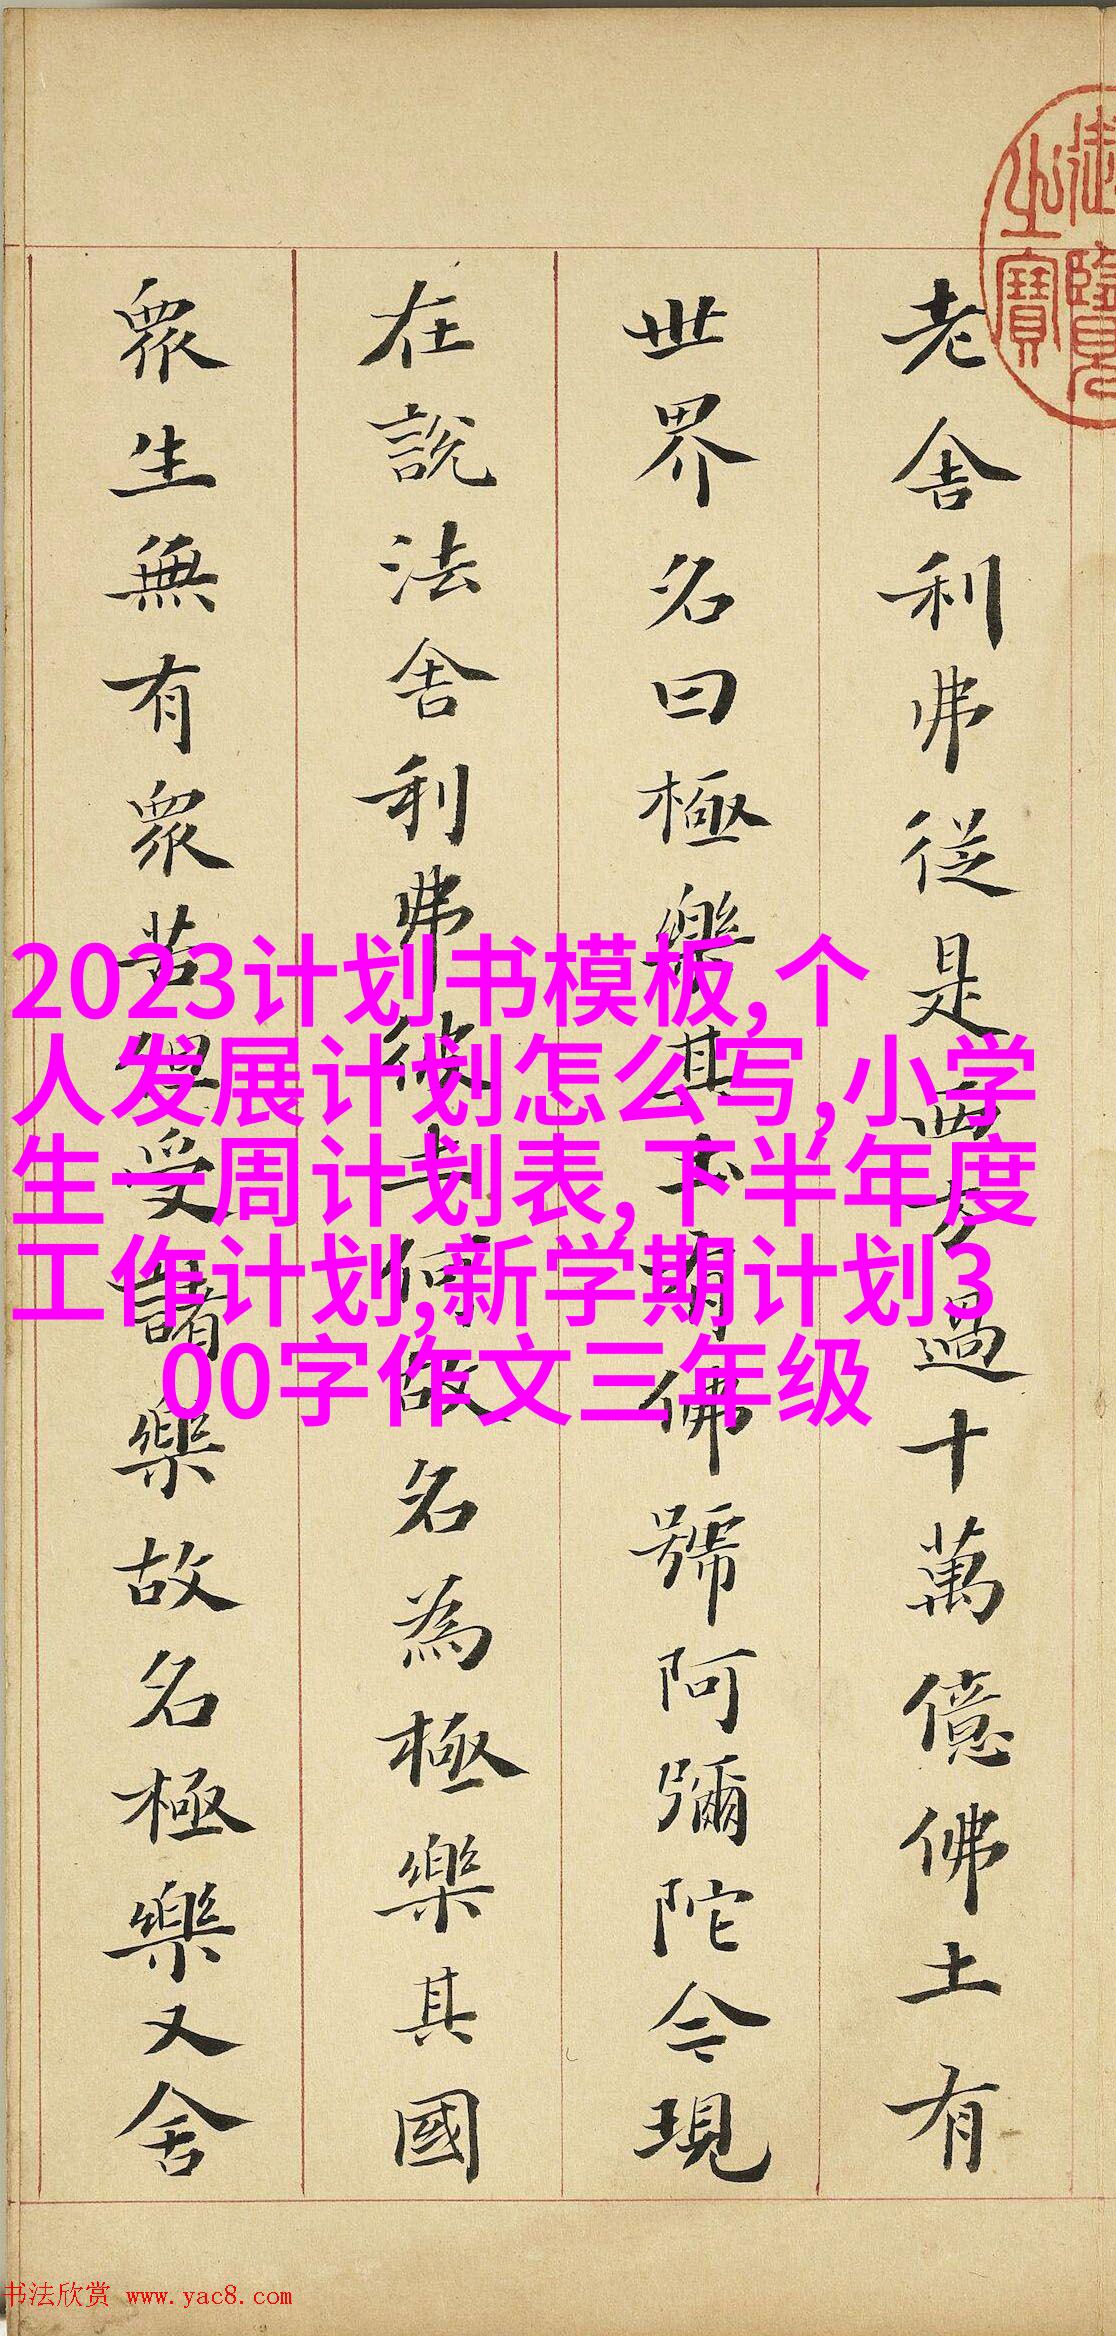 御覽
之寶
老舍利弗從是西方過十萬億佛土有
世界名曰極樂其土有佛號阿彌陀今現
在說法舍利弗彼土何故名為極樂其國
眾生無有眾苦但受諸樂故名極樂又舍
2023计划书模板,个
人发展计划怎么写,小学
生一周计划表,下半年度
工作计划,新学期计划3
00字作文三年级
书法欣赏 www.yac8.com